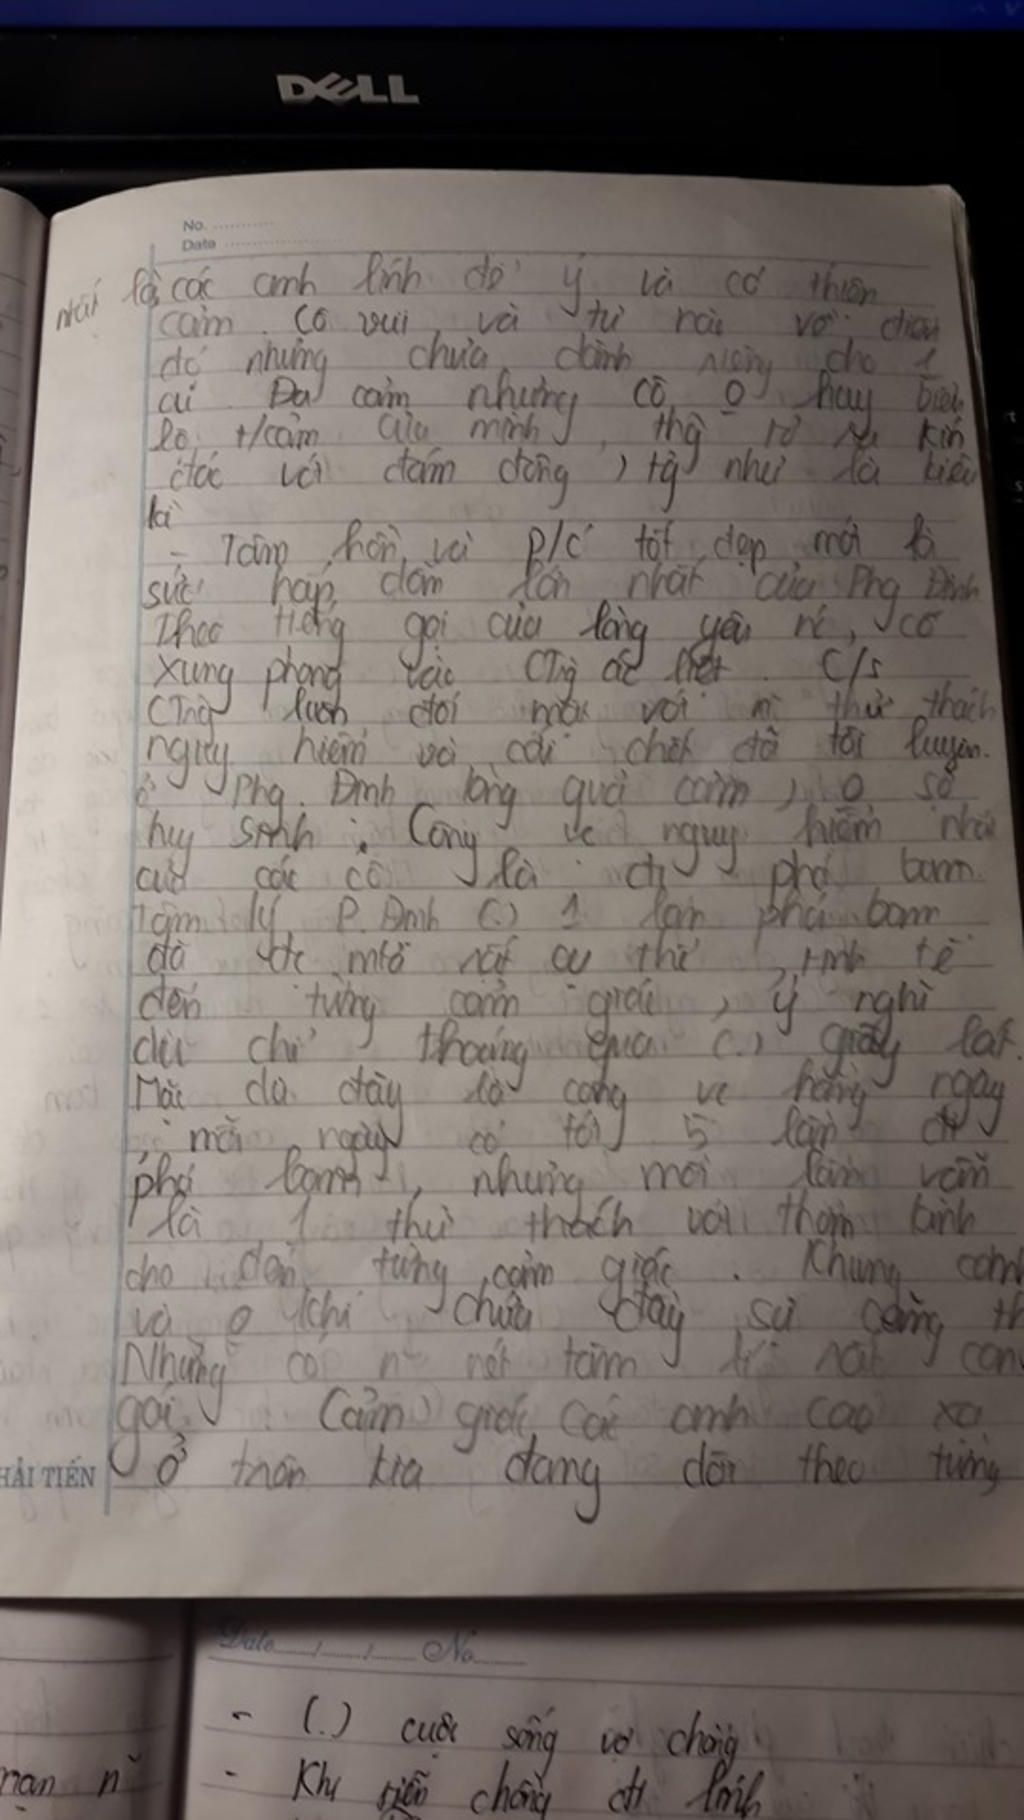 DELL
No. ............
Date ....................
nhất là các anh lính để ý và có thiện
cảm. Cô vui và tự hào về điều
đó nhưng chưa dành riêng cho 1
ai. Đa cảm nhưng cô 0 hay biểu
lộ t/cảm của mình,
đáo với đám đông, như là kiêu
kì
- Tâm hồn và p/c tốt đẹp mới là
sức hấp dẫn lớn nhất của Phg Định
Theo tiếng gọi của lòng yêu nc, cô
xung phong vào CTrg ác liệt. C/s
CTrg luôn đối mặt với thử thách
nguy hiểm và cái chết đã tôi luyện
ở Phg. Định lòng quả cảm, 0 sợ
hy sinh. Công vc nguy hiểm nhất
của các cô là đi phá bom.
Tâm lý P. Định (.) 1 lần phá bom
đã đc mtả rất cụ thể, tinh tế
đến từng cảm giác, ý nghĩ
dù chỉ thoáng qua (.) giây lát.
Mặc dù đây là công vc hằng ngày
mỗi ngày có tới 5 lần đi
phá bom, nhưng mỗi lần vẫn
là 1 thử thách với thần kinh
cho đến từng cảm giác. Khung cảnh
và 0 khí chứa đầy sự căng th
Nhưng có nét tâm lí rất con
gái. Cảm giác các anh cao xạ
ở trên kia đang dõi theo từng
HẢI TIẾN
Date....../....../...... No.......
- (.) cuộc sống vợ chồng
- Khi tiễn chồng đi lính